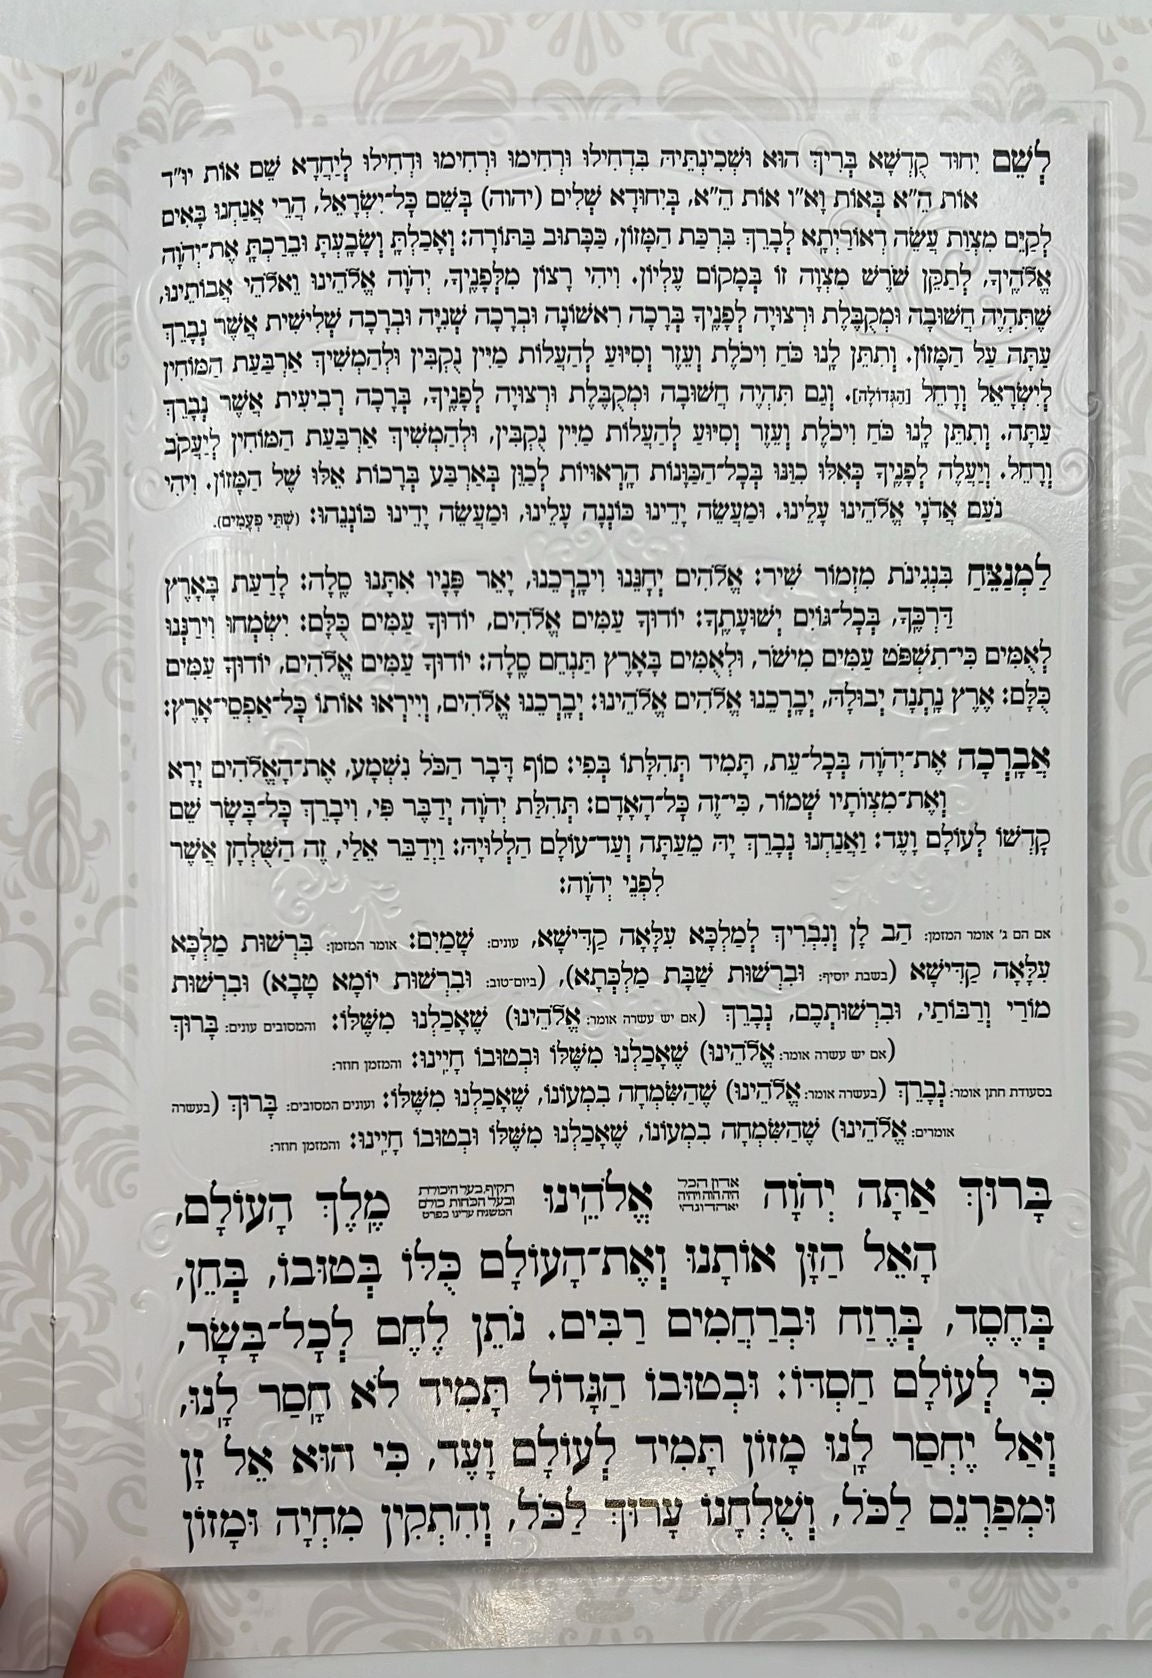 לְשֵׁם יִחוּד קֻדְשָׁא בְּרִיךְ הוּא וּשְׁכִינְתֵּיהּ בִּדְחִילוּ וּרְחִימוּ וּרְחִימוּ וּדְחִילוּ לְיַחֲדָא שֵׁם אוֹת יוּ"ד
אוֹת הֵ"א בְּאוֹת וָא"ו אוֹת הֵ"א, בְּיִחוּדָא שְׁלִים (יהוה) בְּשֵׁם כָּל־יִשְׂרָאֵל, הֲרֵי אֲנַחְנוּ בָּאִים
לְקַיֵּם מִצְוַת עֲשֵׂה דְאוֹרַיְתָא לְבָרֵךְ בִּרְכַּת הַמָּזוֹן, כַּכָּתוּב בַּתּוֹרָה: וְאָכַלְתָּ וְשָׂבָעְתָּ וּבֵרַכְתָּ אֶת־יְהֹוָה
אֱלֹהֶיךָ, לְתַקֵּן שֹׁרֶשׁ מִצְוָה זוֹ בְּמָקוֹם עֶלְיוֹן. וִיהִי רָצוֹן מִלְּפָנֶיךָ, יְהֹוָה אֱלֹהֵינוּ וֵאלֹהֵי אֲבוֹתֵינוּ,
שֶׁתִּהְיֶה חֲשׁוּבָה וּמְקֻבֶּלֶת וּרְצוּיָה לְפָנֶיךָ בְּרָכָה רִאשׁוֹנָה וּבְרָכָה שְׁנִיָּה וּבְרָכָה שְׁלִישִׁית אֲשֶׁר נְבָרֵךְ
עַתָּה עַל הַמָּזוֹן. וְתִתֵּן לָנוּ כֹּחַ וִיכֹלֶת וְעֵזֶר וְסִיּוּעַ לְהַעֲלוֹת מַיִּין נֻקְבִּין וּלְהַמְשִׁיךְ אַרְבַּעַת הַמּוֹחִין
לְיִשְׂרָאֵל וְרָחֵל [הַגְּדוֹלָה]. וְגַם תִּהְיֶה חֲשׁוּבָה וּמְקֻבֶּלֶת וּרְצוּיָה לְפָנֶיךָ, בְּרָכָה רְבִיעִית אֲשֶׁר נְבָרֵךְ
עַתָּה. וְתִתֵּן לָנוּ כֹּחַ וִיכֹלֶת וְעֵזֶר וְסִיּוּעַ לְהַעֲלוֹת מַיִּין נֻקְבִּין, וּלְהַמְשִׁיךְ אַרְבַּעַת הַמּוֹחִין לְיַעֲקֹב
וְרָחֵל. וְיַעֲלֶה לְפָנֶיךָ כְּאִלּוּ כִּוַּנּוּ בְּכָל־הַכַּוָּנוֹת הָרְאוּיוֹת לְכַוֵּן בְּאַרְבַּע בְּרָכוֹת אֵלּוּ שֶׁל הַמָּזוֹן. וִיהִי
נֹעַם אֲדֹנָי אֱלֹהֵינוּ עָלֵינוּ. וּמַעֲשֵׂה יָדֵינוּ כּוֹנְנָה עָלֵינוּ, וּמַעֲשֵׂה יָדֵינוּ כּוֹנְנֵהוּ: (שְׁתֵּי פְּעָמִים).
לַמְנַצֵּחַ בִּנְגִינֹת מִזְמוֹר שִׁיר: אֱלֹהִים יְחָנֵּנוּ וִיבָרְכֵנוּ, יָאֵר פָּנָיו אִתָּנוּ סֶלָה: לָדַעַת בָּאָרֶץ
דַּרְכֶּךָ, בְּכָל־גּוֹיִם יְשׁוּעָתֶךָ: יוֹדוּךָ עַמִּים אֱלֹהִים, יוֹדוּךָ עַמִּים כֻּלָּם: יִשְׂמְחוּ וִירַנְּנוּ
לְאֻמִּים כִּי־תִשְׁפֹּט עַמִּים מִישֹׁר, וּלְאֻמִּים בָּאָרֶץ תַּנְחֵם סֶלָה: יוֹדוּךָ עַמִּים אֱלֹהִים, יוֹדוּךָ עַמִּים
כֻּלָּם: אֶרֶץ נָתְנָה יְבוּלָהּ, יְבָרְכֵנוּ אֱלֹהִים אֱלֹהֵינוּ: יְבָרְכֵנוּ אֱלֹהִים, וְיִירְאוּ אוֹתוֹ כָּל־אַפְסֵי־אָרֶץ:
אֲבָרְכָה אֶת־יְהֹוָה בְּכָל־עֵת, תָּמִיד תְּהִלָּתוֹ בְּפִי: סוֹף דָּבָר הַכֹּל נִשְׁמָע, אֶת־הָאֱלֹהִים יְרָא
וְאֶת־מִצְוֹתָיו שְׁמוֹר, כִּי־זֶה כָּל־הָאָדָם: תְּהִלַּת יְהֹוָה יְדַבֶּר פִּי, וִיבָרֵךְ כָּל־בָּשָׂר שֵׁם
קָדְשׁוֹ לְעוֹלָם וָעֶד: וַאֲנַחְנוּ נְבָרֵךְ יָהּ מֵעַתָּה וְעַד־עוֹלָם הַלְלוּיָהּ: וַיְדַבֵּר אֵלַי, זֶה הַשֻּׁלְחָן אֲשֶׁר
לִפְנֵי יְהֹוָה:
אם הם ג' אומר המזמן: הַב לָן וְנִבְרִיךְ לְמַלְכָּא עִלָּאָה קַדִּישָׁא, עונים: שָׁמַיִם: אומר המזמן: בִּרְשׁוּת מַלְכָּא
עִלָּאָה קַדִּישָׁא (בשבת יוסיף: וּבִרְשׁוּת שַׁבָּת מַלְכְּתָא), (ביום־טוב: וּבִרְשׁוּת יוֹמָא טָבָא) וּבִרְשׁוּת
מוֹרַי וְרַבּוֹתַי, וּבִרְשׁוּתְכֶם, נְבָרֵךְ (אם יש עשרה אומר: אֱלֹהֵינוּ) שֶׁאָכַלְנוּ מִשֶּׁלּוֹ: והמסובים עונים: בָּרוּךְ
(אם יש עשרה אומר: אֱלֹהֵינוּ) שֶׁאָכַלְנוּ מִשֶּׁלּוֹ וּבְטוּבוֹ חָיִינוּ: והמזמן חוזר:
בסעודת חתן אומר: נְבָרֵךְ (בעשרה אומר: אֱלֹהֵינוּ) שֶׁהַשִּׂמְחָה בִמְעוֹנוֹ, שֶׁאָכַלְנוּ מִשֶּׁלּוֹ: ועונים המסובים: בָּרוּךְ (בעשרה
אומרים: אֱלֹהֵינוּ) שֶׁהַשִּׂמְחָה בִמְעוֹנוֹ, שֶׁאָכַלְנוּ מִשֶּׁלּוֹ וּבְטוּבוֹ חָיִינוּ: והמזמן חוזר:
בָּרוּךְ אַתָּה יְהֹוָה אדון הכל היה הוה ויהיה יאהדונהי אֱלֹהֵינוּ תקיף, בעל היכולת ובעל הכחות כולם המשגיח עלינו בפרט מֶלֶךְ הָעוֹלָם,
הָאֵל הַזָּן אוֹתָנוּ וְאֶת־הָעוֹלָם כֻּלּוֹ בְּטוּבוֹ, בְּחֵן,
בְּחֶסֶד, בְּרֶוַח וּבְרַחֲמִים רַבִּים. נֹתֵן לֶחֶם לְכָל־בָּשָׂר,
כִּי לְעוֹלָם חַסְדּוֹ: וּבְטוּבוֹ הַגָּדוֹל תָּמִיד לֹא חָסַר לָנוּ,
וְאַל יֶחְסַר לָנוּ מָזוֹן תָּמִיד לְעוֹלָם וָעֶד, כִּי הוּא אֵל זָן
וּמְפַרְנֵס לַכֹּל, וְשֻׁלְחָנוֹ עָרוּךְ לַכֹּל, וְהִתְקִין מִחְיָה וּמָזוֹן